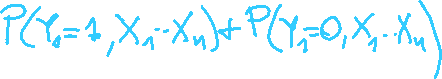 P(Y₁=1, X₁··Xₙ)+P(Y₁=0, X₁..Xₙ)